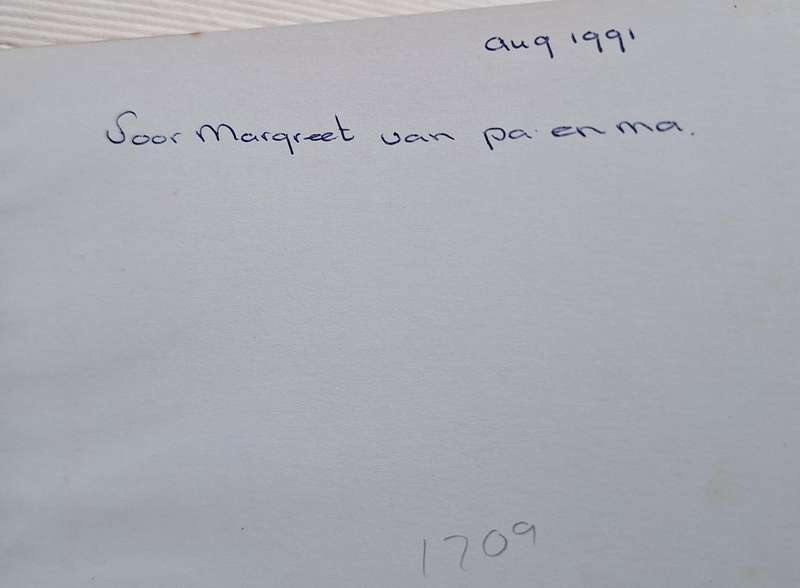 aug 1991
Voor Margreet van pa en ma.
1709